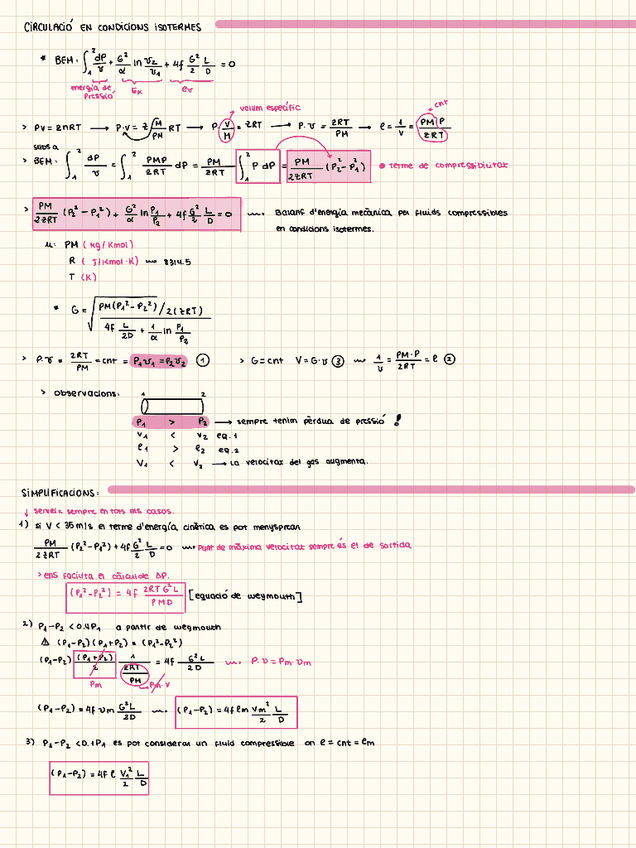 CIRCULACIÓ EN CONDICIONS ISOTERMES
* BEM: ∫₁² dP/v + G²/α ln v₂/v₁ + 4f G²/2 L/D = 0
energia de pressió Ek ev
volum específic
cnt
> PV = znRT → P·V = z M/PM RT → P V/M = zRT → P·v = zRT/PM → ρ = 1/v = PM P/zRT
subs a
> BEM: ∫₁² dP/v = ∫₁² PMP/zRT dP = PM/zRT ∫₁² P dP = PM/2zRT (P₂²-P₁²) terme de compressibilitat
> PM/2zRT (P₂²-P₁²) + G²/α ln P₁/P₂ + 4f G²/2 L/D = 0 Balanç d'energia mecànica per fluids compressibles
en condicions isotermes.
u: PM (kg/kmol)
R (J/kmol·K) 8314.5
T (K)
* G = √(PM(P₁²-P₂²)/2(zRT) / 4f L/2D + 1/α ln P₁/P₂)
> P·v = zRT/PM = cnt = P₁v₁ = P₂v₂ ① > G = cnt V = G·v ③ 1/v = PM·P/zRT = ρ ②
> observacions: 1 2
P₁ > P₂ → sempre tenim pèrdua de pressió !
v₁ < v₂ eq.1
ρ₁ > ρ₂ eq.2
V₁ < V₂ → La velocitat del gas augmenta.
SIMPLIFICACIONS:
↓ serveix sempre en tots els casos.
1) si V < 35 m/s el terme d'energia cinètica es pot menysprear
PM/2zRT (P₂²-P₁²) + 4f G²/2 L/D = 0 Punt de màxima velocitat sempre és el de sortida
> ens facilita el càlcul de ΔP.
(P₁²-P₂²) = 4f zRTG²L/PMD [equació de weymouth]
2) P₁-P₂ < 0.4P₁ a partir de weymouth
⚠ (P₁-P₂)(P₁+P₂) = (P₁²-P₂²)
(P₁-P₂) (P₁+P₂)/2 1/(zRT/PM) = 4f G²L/2D P·v = Pm·vm
Pm Pm·v
(P₁-P₂) = 4f vm G²L/2D (P₁-P₂) = 4f ρm Vm²/2 L/D
3) P₁-P₂ < 0.1P₁ es pot considerar un fluid compressible on ρ = cnt = ρm
(P₁-P₂) = 4f ρ V₁²/2 L/D